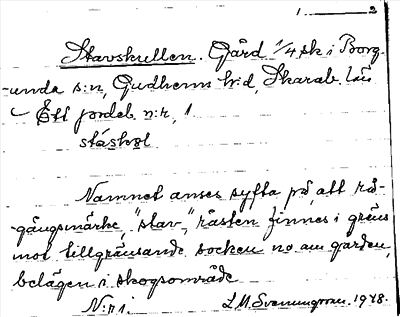 1 2
Stavskullen. Gård 1/4 sk i Borg-
unda s:n, Gudhems h:d, Skarab. län
Ett jordeb. n:r, 1
Namnet anses syfta på, att rå-
gångsmärke, "stav," rästen finnes i gräns
mot tillgränsande socken no om gården,
belägen i skogsområde
N:r 1. L.M. Svenungsson. 1948.